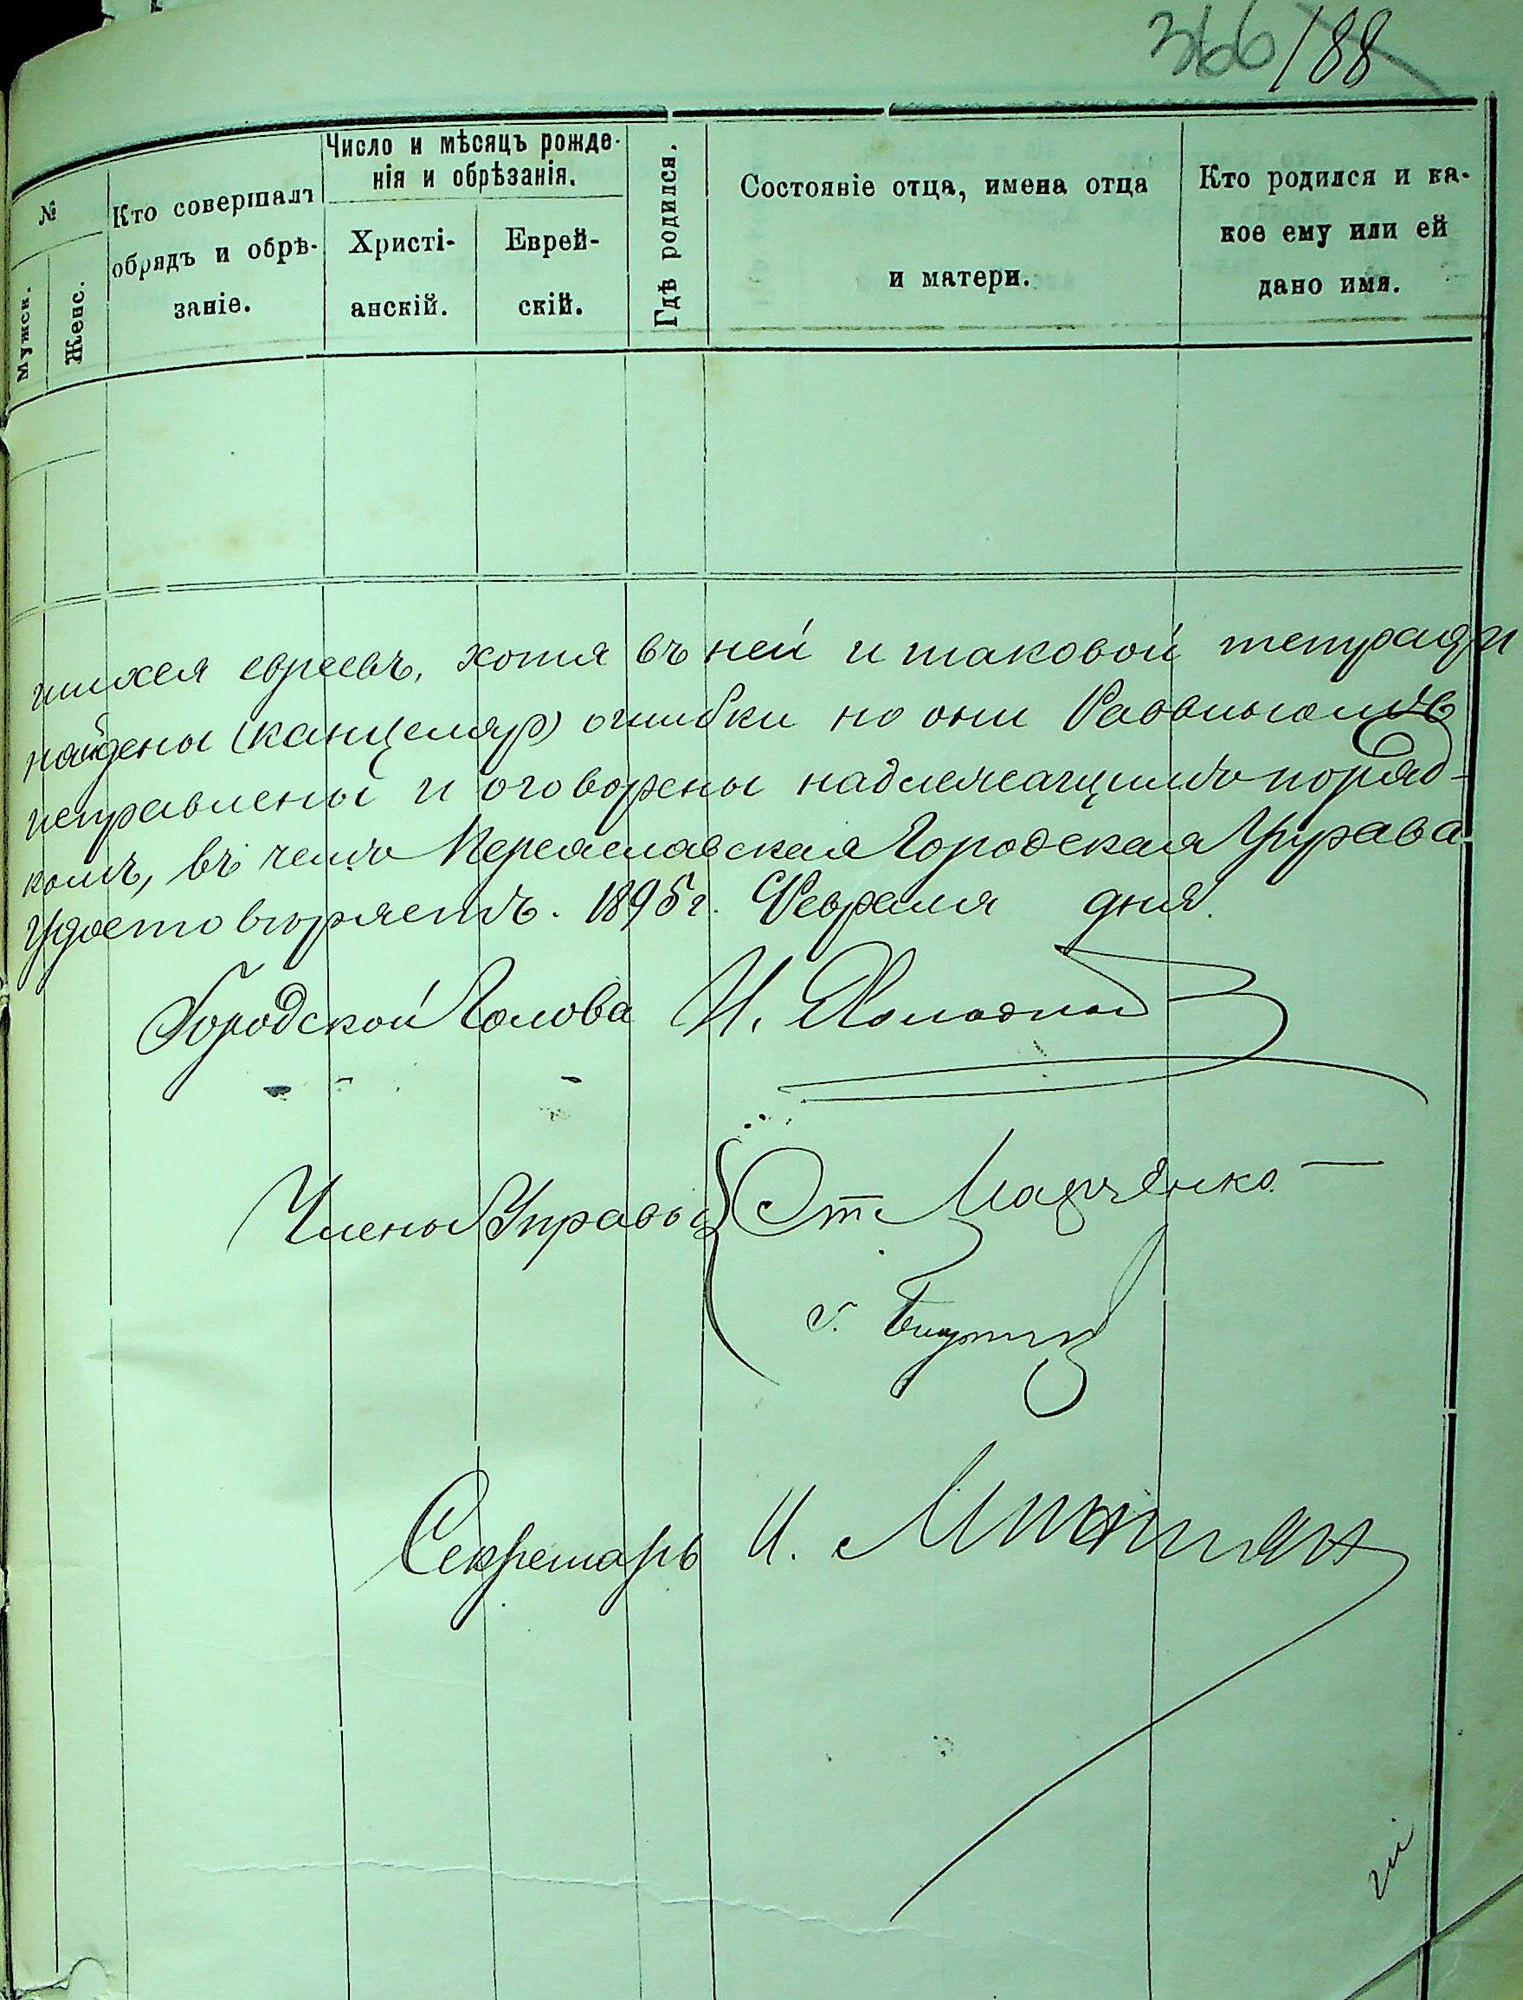 366 188
№
Мужск.
Женс.
Кто совершалъ
обрядъ и обрѣ-
заніе.
Число и мѣсяцъ рожде-
нія и обрѣзанія.
Христі-
анскій.
Еврей-
скій.
Гдѣ родился.
Состояніе отца, имена отца
и матери.
Кто родился и ка-
кое ему или ей
дано имя.
шихся евреевъ, хотя въ ней и таковой тетради
найдены (канцеляр) ошибки но они Раввиномъ
исправлены и оговорены надлежащимъ поряд-
комъ, въ чемъ Переяславская Городская Управа
удостовѣряетъ. 1895 г. Февраля дня.
Городской Голова И.
Члены Управы Ст. Марченко
Г.
Секретарь И.